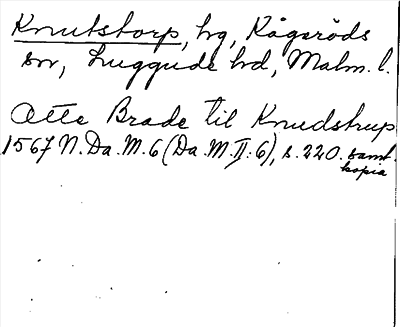 Knutstorp, hg, Kågeröds
sn, Luggude hd, Malm. l.
Otte Brade til Knudstrup
1567 N. Da. M. 6 (Da. M. II: 6), s. 220. samt.
kopia